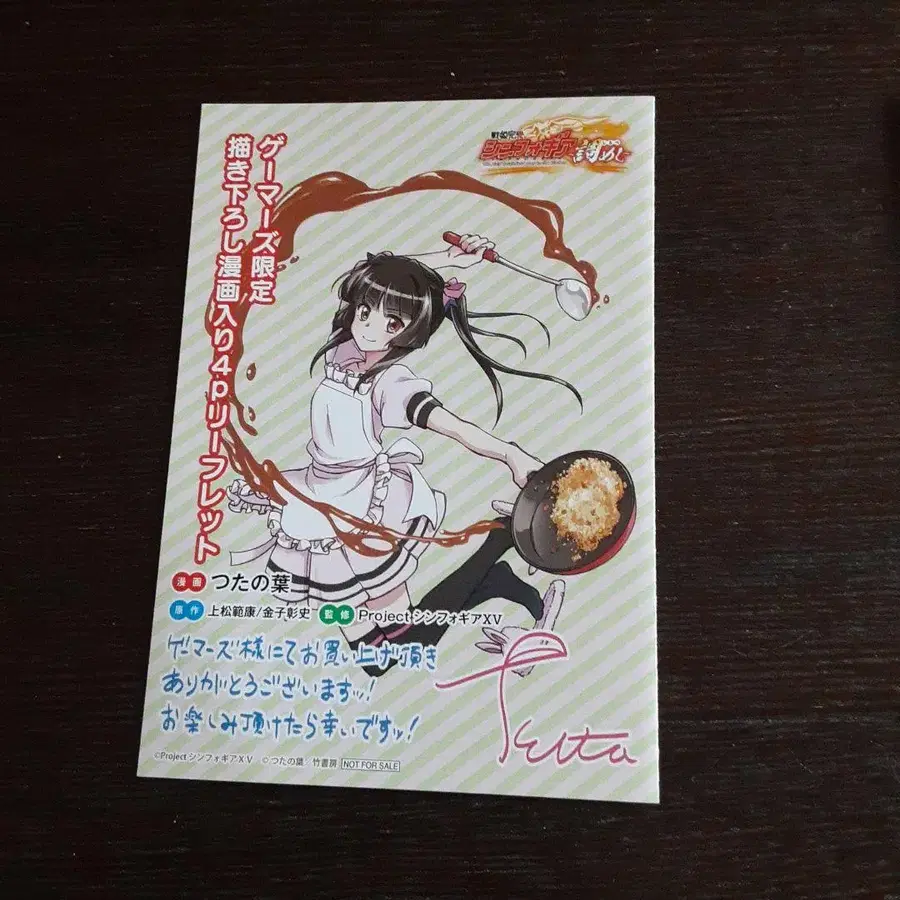 ゲーマーズ限定
描き下ろし漫画入り4pリーフレット
戦姫完唱
シンフォギア 詩めし
漫画 つたの葉
原作 上松範康/金子彰史 監修 ProjectシンフォギアXV
ゲーマーズ様にてお買い上げ頂き
ありがとうございますッ!
お楽しみ頂けたら幸いですッ!
©ProjectシンフォギアXV © つたの葉/竹書房 NOT FOR SALE